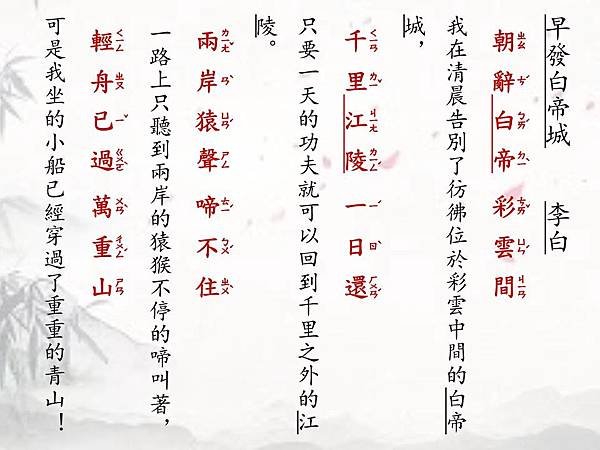 早發白帝城 李白
朝辭白帝彩雲間
我在清晨告別了彷彿位於彩雲中間的白帝
城，
千里江陵一日還
只要一天的功夫就可以回到千里之外的江
陵。
兩岸猿聲啼不住
一路上只聽到兩岸的猿猴不停的啼叫著，
輕舟已過萬重山
可是我坐的小船已經穿過了重重的青山！